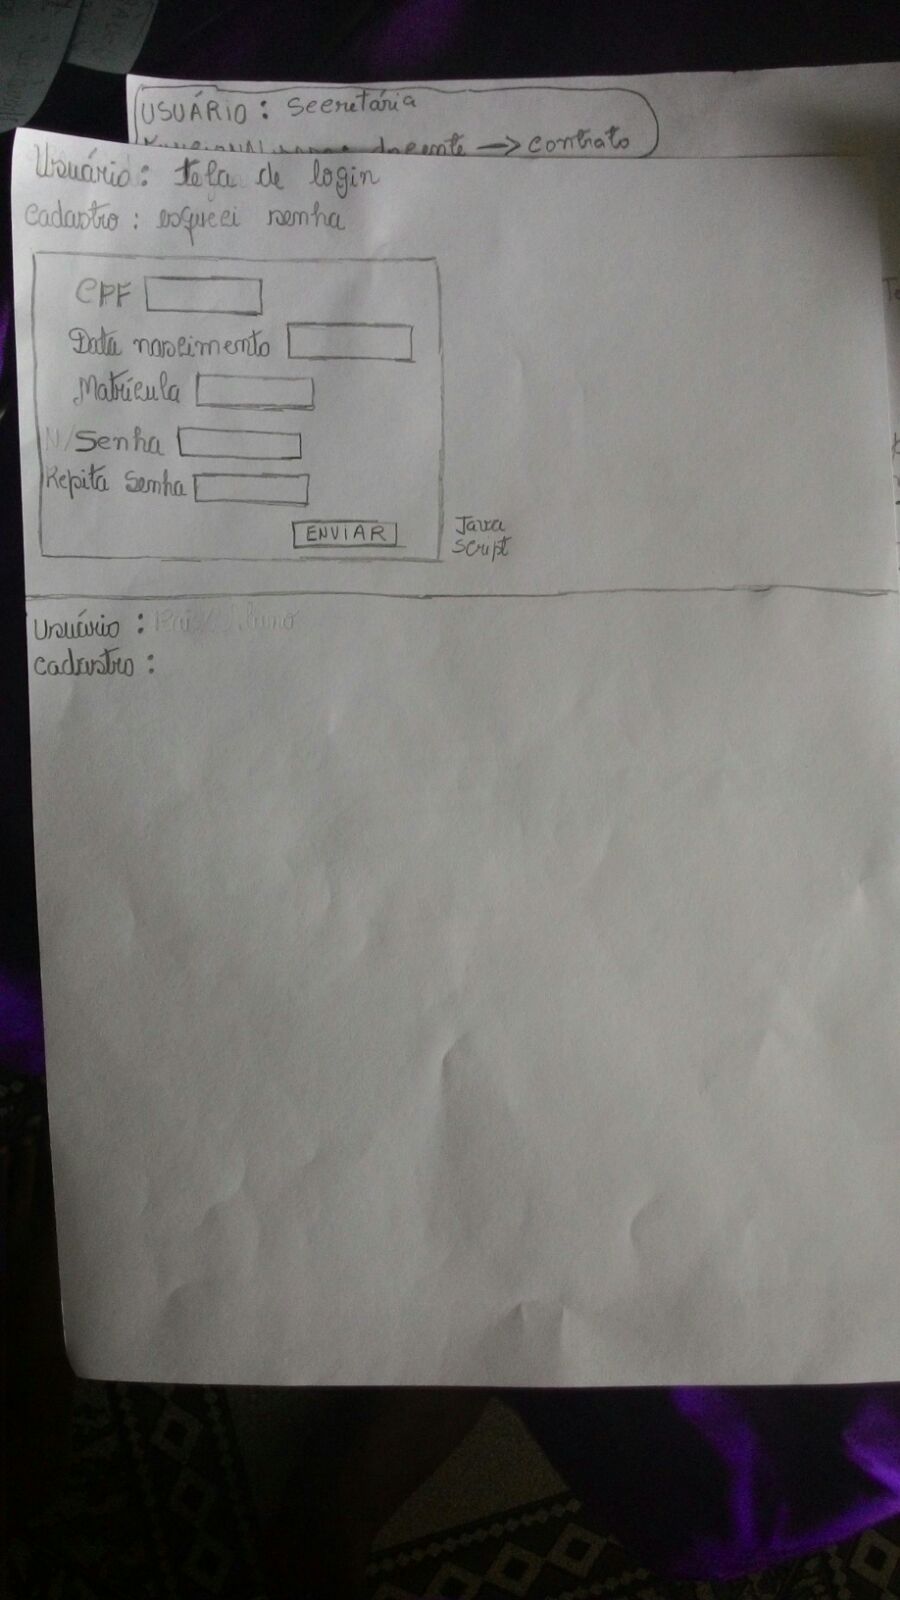 USUÁRIO: Secretária
docente → contrato
Usuário: tela de login
cadastro: esqueci senha
CPF
Data nascimento
Matrícula
N/Senha
Repita Senha
ENVIAR
Java
Script
Usuário:
cadastro: